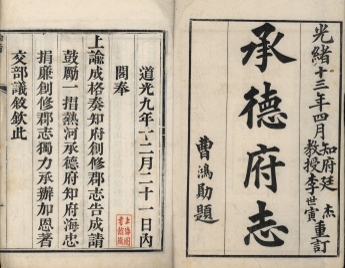 光緒十三年四月知府廷杰
教授李世寅重訂
承德府志
曹鴻勛題
道光九年十二月二十一日內
閣奉
上諭成格奏知府創修郡志告成請
鼓勵一摺熱河承德府知府海忠
捐廉創修郡志獨力承辦加恩著
交部議敘欽此